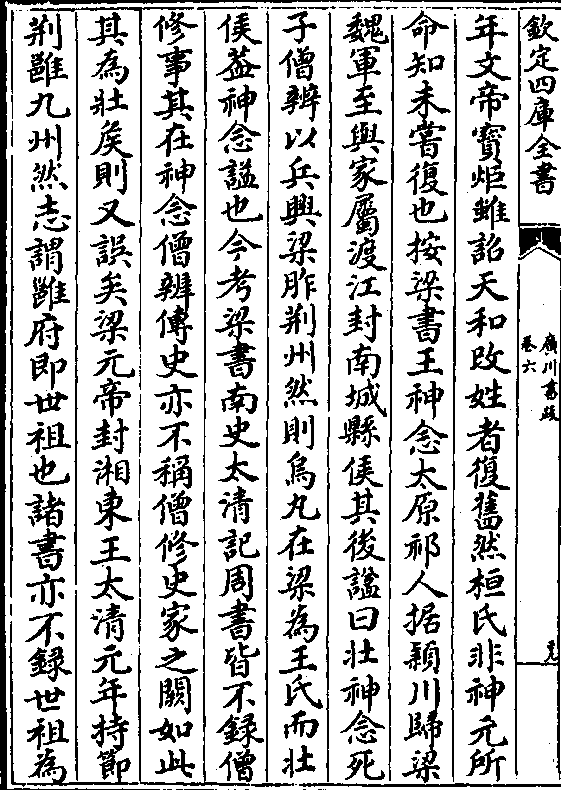 欽定四庫全書
廣川書跋
卷六
年文帝寳炬雖詔天和改姓者復舊然桓氏非神元所
命知未嘗復也按梁書王神念太原祁人据潁川歸梁
魏軍至與家屬渡江封南城縣侯其後諡曰壯神念死
子僧辨以兵興梁胙荆州然則烏丸在梁為王氏而壯
侯葢神念諡也今考梁書南史太清記周書皆不録僧
修事其在神念僧辨傳史亦不稱僧修史家之闕如此
其為壯矦則又誤矣梁元帝封湘東王太清元年持節
荆雝九州然志謂雝府即世祖也諸書亦不録世祖為